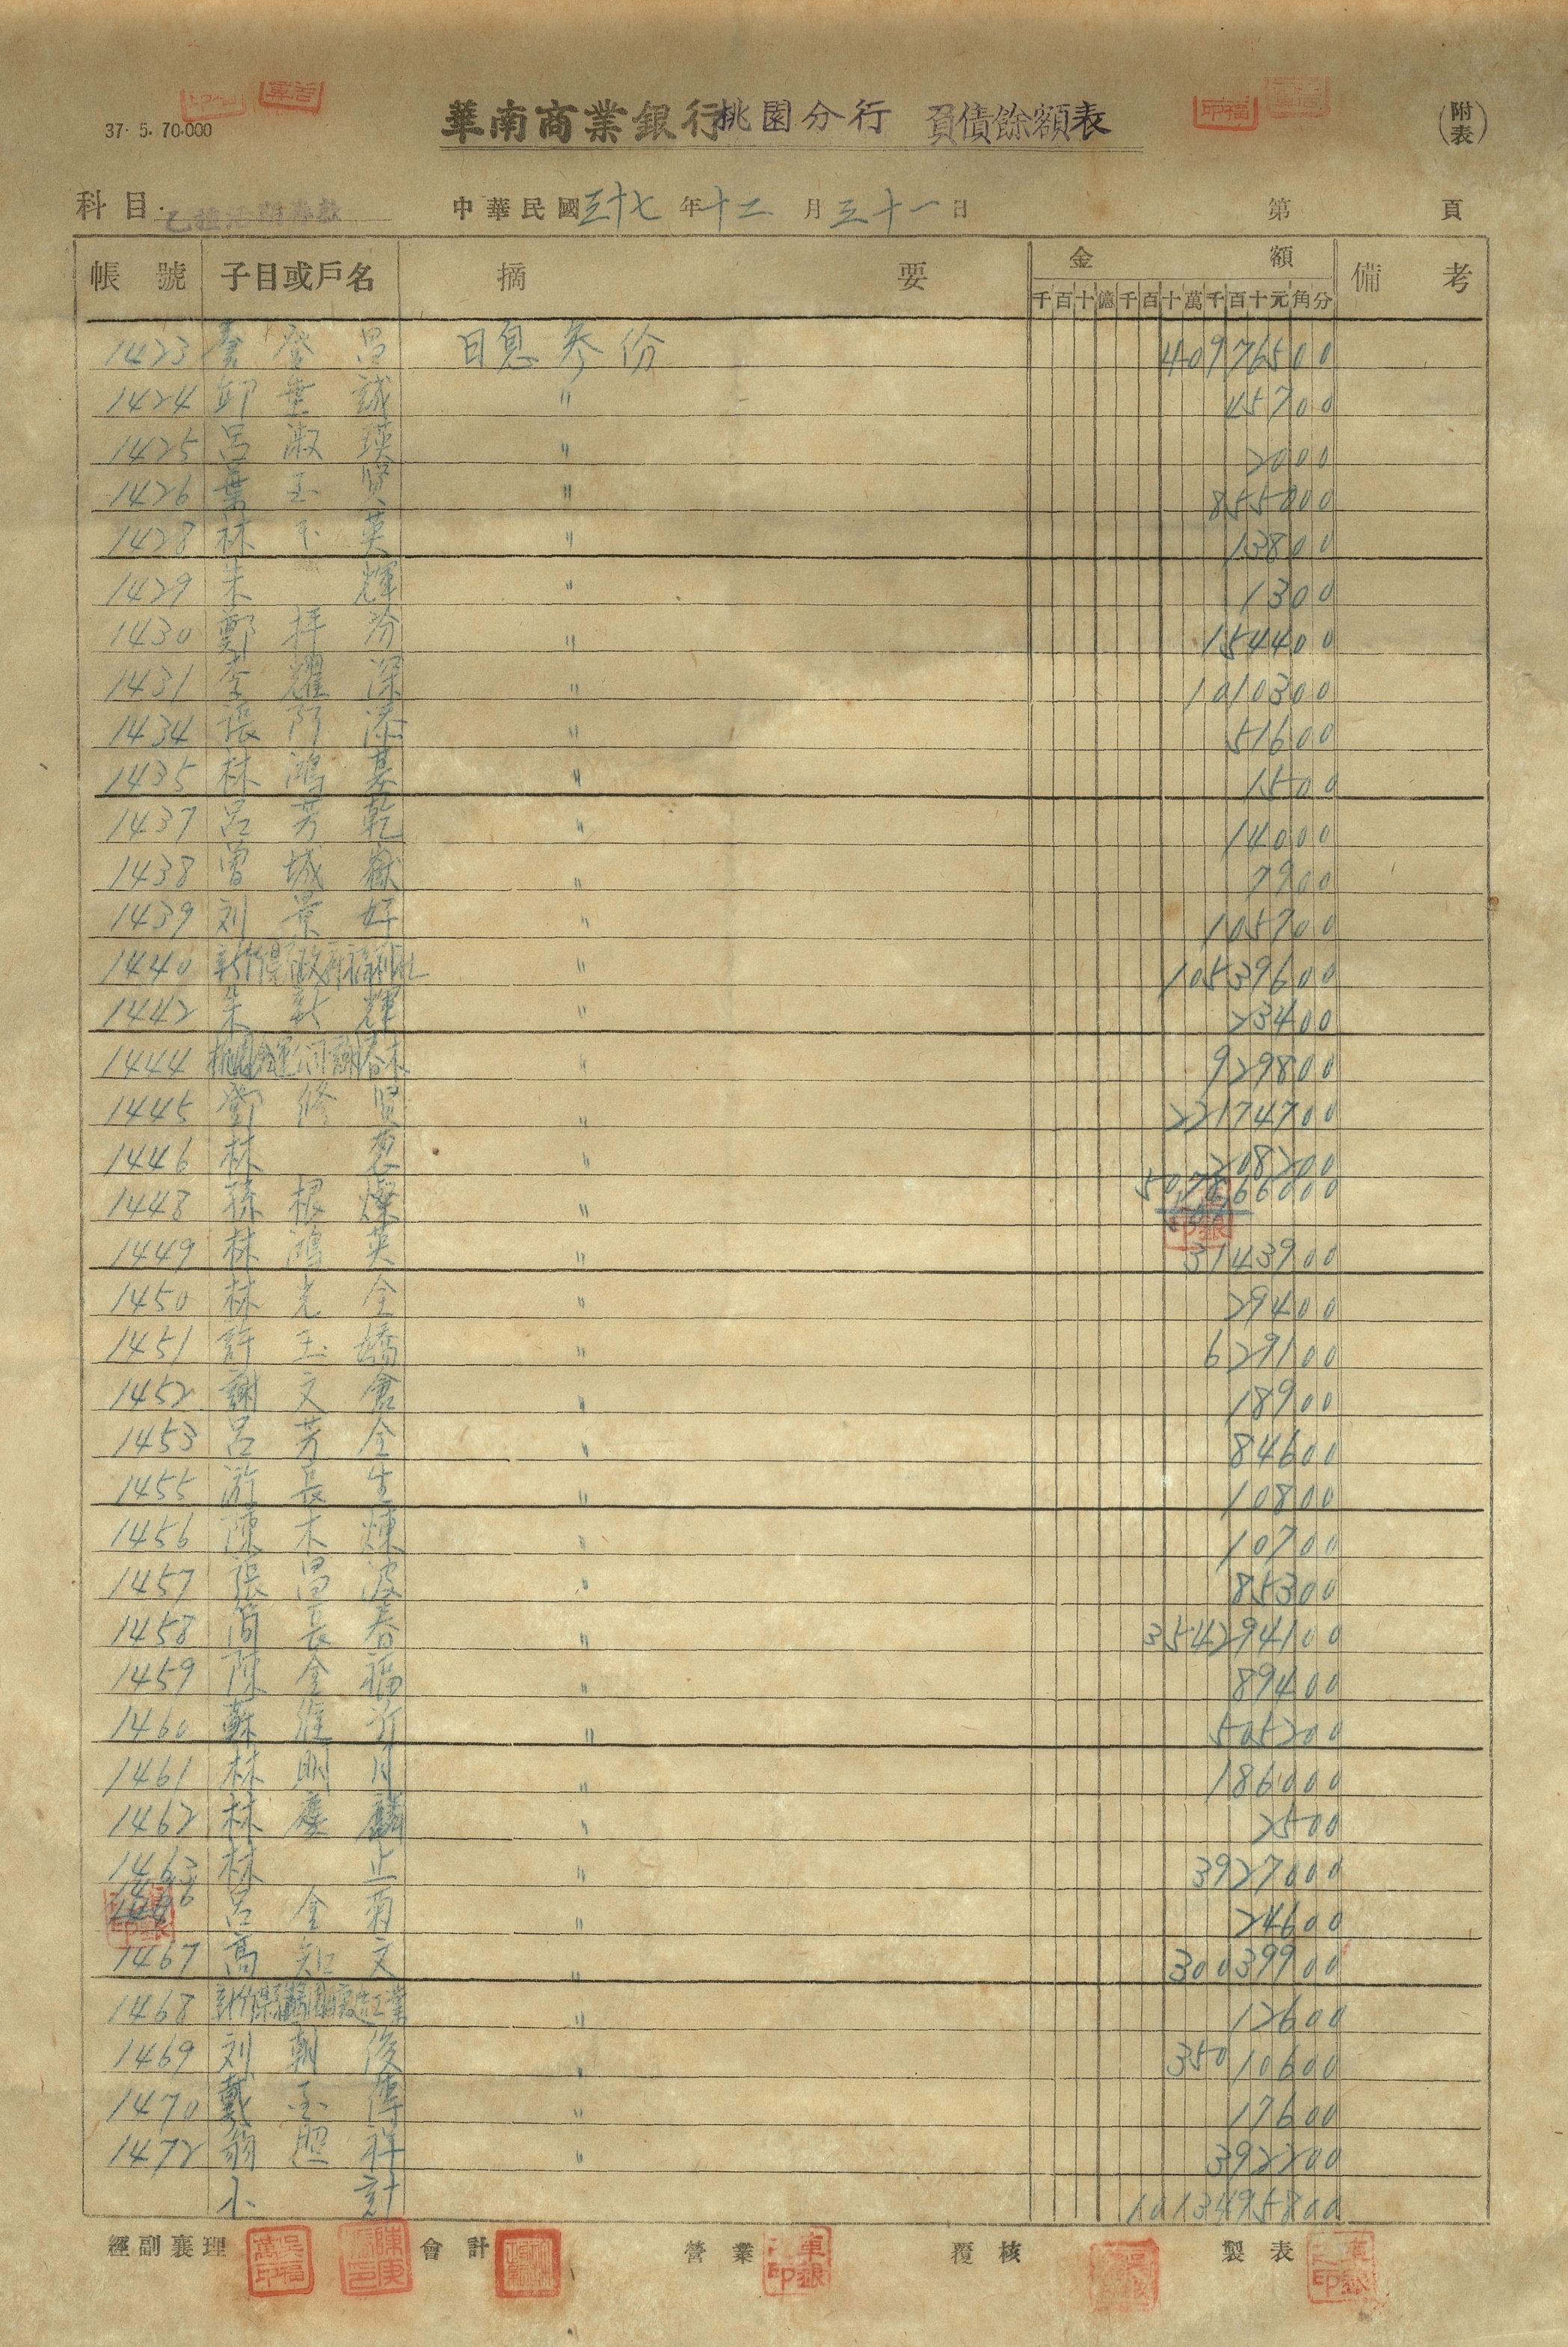 37. 5. 70.000
華南商業銀行桃園分行 負債餘額表
(附表)
科目. 乙種活期存款
中華民國三十七年十二月三十一日
第 頁
帳號 子目或戶名 摘要 金額 備考
千百十億千百十萬千百十元角分
1423 登昌 日息參份 409765 00
1424 邱垂誠 〃 457 00
1425 呂淑瑛 〃 20 00
1426 葉玉賢 〃 8550 00
1428 林玉英 〃 138 00
1429 朱輝 〃 13 00
1430 鄭拝汾 〃 1544 00
1431 李耀深 〃 10103 00
1434 張阿添 〃 516 00
1435 林鴻基 〃 15 00
1437 呂芳乾 〃 140 00
1438 曾城嶽 〃 79 00
1439 刘景好 〃 1057 00
1440 新竹縣政府福利社 〃 105396 00
1442 朱新輝 〃 234 00
1444 桃園客運公司謝春木 〃 9298 00
1445 鄧修賢 〃 221747 00
1446 林 〃 2082 00
1448 孫根燦 〃 00
1449 林鴻英 〃 31439 00
1450 林光全 〃 294 00
1451 許玉嬌 〃 6291 00
1452 謝文倉 〃 189 00
1453 呂芳全 〃 846 00
1455 游長生 〃 108 00
1456 陳木煉 〃 107 00
1457 張昌波 〃 853 00
1458 簡長春 〃 3542941 00
1459 陳金福 〃 894 00
1460 蘇維 〃 5052 00
1461 林明月 〃 1860 00
1462 林慶麟 〃 25 00
1463 林止 〃 39270 00
1466 呂金菊 〃 246 00
1467 高知文 〃 300399 00
1468 新竹縣 〃 126 00
1469 刘朝俊 〃 350106 00
1470 戴玉傳 〃 176 00
1472 翁照祥 〃 3922 00
小計 10134958 00
經副襄理 會計 營業 覆核 製表